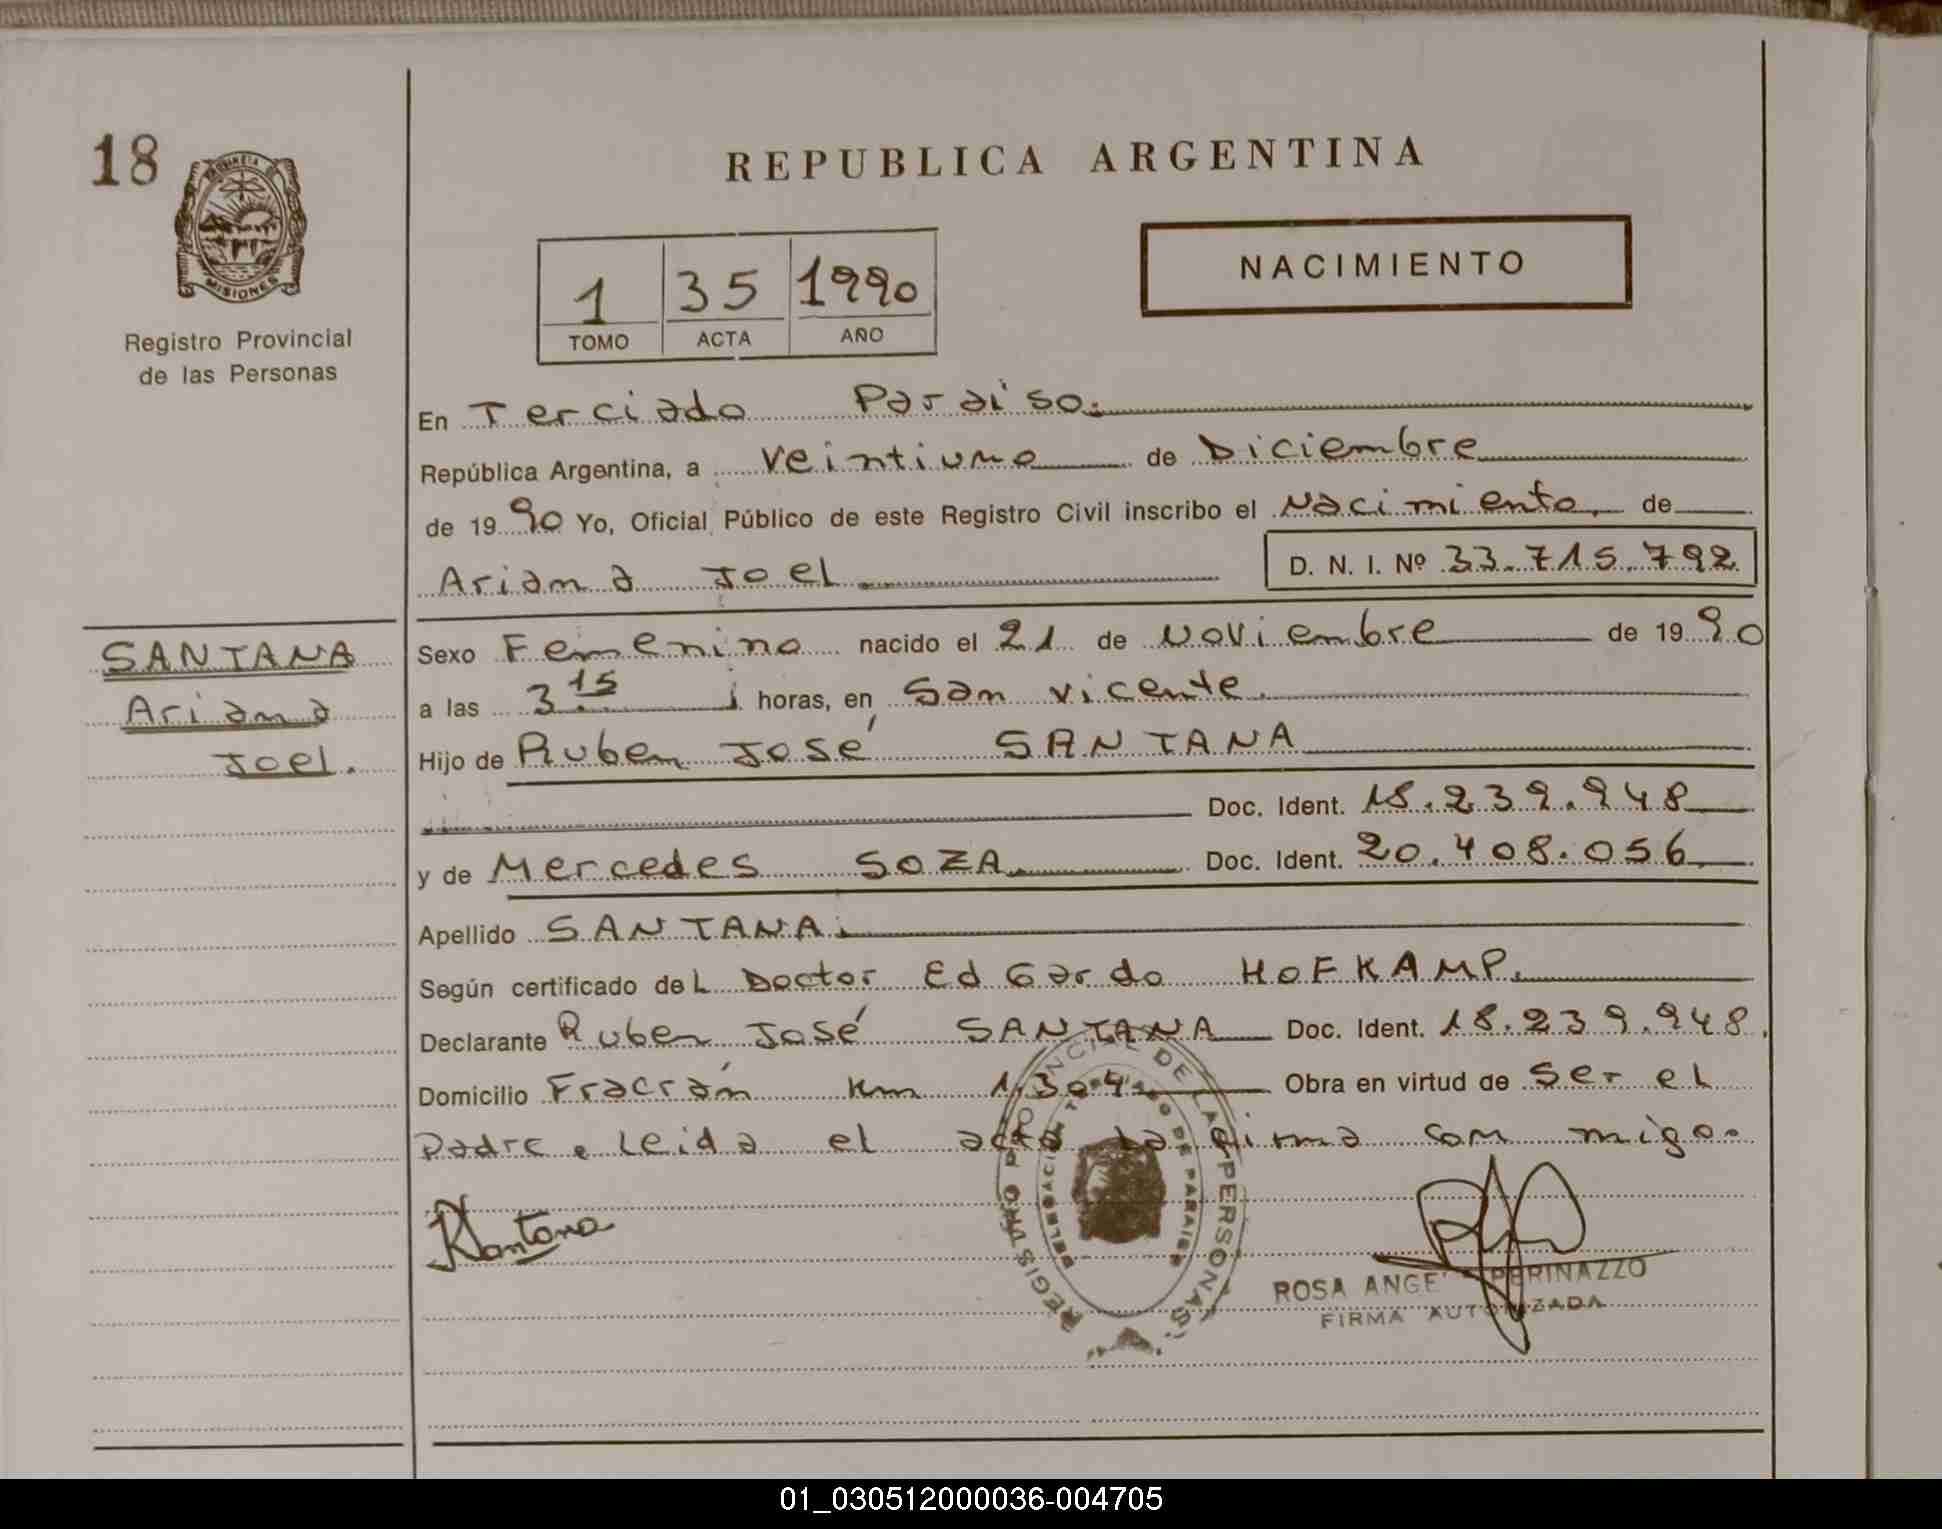 18
PROVINCIA DE
MISIONES
Registro Provincial
de las Personas
REPUBLICA ARGENTINA
1 35 1990
TOMO ACTA AÑO
NACIMIENTO
En Terciado Paraiso.
República Argentina, a veintiuno de Diciembre
de 1990 Yo, Oficial Público de este Registro Civil inscribo el Nacimiento de
Ariana Joel D. N. I. Nº 33.715.792
SANTANA
Ariana
Joel.
Sexo Femenino nacido el 21 de Noviembre de 1990
a las 3.15 horas, en San Vicente.
Hijo de Ruben José SANTANA
Doc. Ident. 18.239.948
y de Mercedes SOZA Doc. Ident. 20.408.056
Apellido SANTANA.
Según certificado del Doctor EdGardo HOFKAMP.
Declarante Ruben José SANTANA Doc. Ident. 18.239.948.
Domicilio Fracrán Km 1.304 Obra en virtud de ser el
Padre. Leida el acta la firma con migo.
RSantana
REGISTRO PROVINCIAL DE LAS PERSONAS
DELEGACION DE PARAISO
ROSA ANGE PERINAZZO
FIRMA AUTORIZADA
01_030512000036-004705